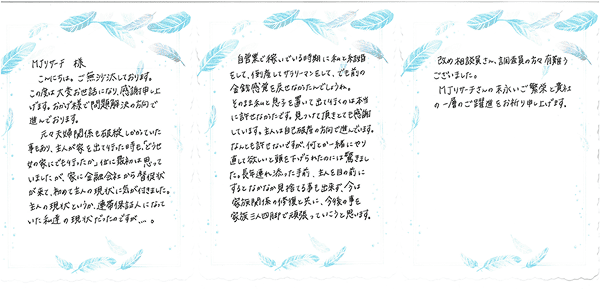 MJリサーチ 様
こんにちは。ご無沙汰しております。
この度は大変お世話になり、感謝申し上
げます。おかげ様で問題解決の方向で
進んでおります。
元々夫婦関係も破綻しかけていた
事もあり、主人が家を出て行った時も、どうせ
女の家にでも行ったか。位に最初は思って
いましたが、家に金融会社から督促状
が来て、初めて主人の現状に気が付きました。
主人の現状というか、連帯保証人になって
いた私達の現状だったのですが…。
自営業で稼いでいる時期に私と結婚
をして、倒産してサラリーマンをして、でも前の
金銭感覚を戻せなかたんでしょうね。
そのまま私と息子を置いて出て行くのは本当
に許せなかたです。見つけて頂きとても感謝
しています。主人は自己破産の方向で進んでいます。
なんとも許せないですが、何とか一緒にやり
直して欲しいと頭を下げられたのには驚きまし
た。長年連れ添った手前、主人を目の前に
するとなかなか見捨てる事も出来ず、今は
家族関係の修復と共に、今後の事を
家族三人四脚で頑張っていこうと思います。
改め相談員さん、調査員の方々有難う
ございました。
MJリサーチさんの末永いご繁栄と貴社
の一層のご躍進をお祈り申し上げます。